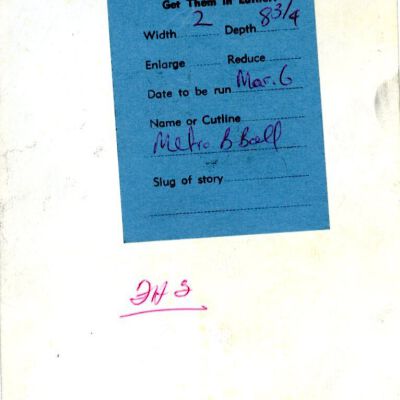 Get Them In Earlier!
Width 2 Depth 8 3/4
Enlarge Reduce
Date to be run Mar. 6
Name or Cutline
Metro B Ball
Slug of story